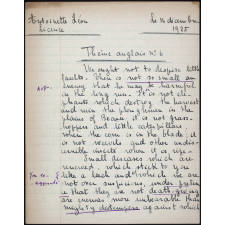 Antoinette Léon
Licence
Le 14 décembre
1925
Thème anglais n° 6
We ought not to despise little
faults. There is not so small an
enemy that he may be harmful
in the long run. It is not
phants which destroy the harvest
and ruin the ploughman in the
plains of Beauce, it is not grass-
hoppers and little caterpillars,
when the corn is in the blade, it
is not weevils and other
insects when it is ripe.
Small diseases which are
renewed, which stick to you
like a leech and which we are
not over suspicious, under
that they are not death-giving,
are enemies more unbearable than
mighty against which